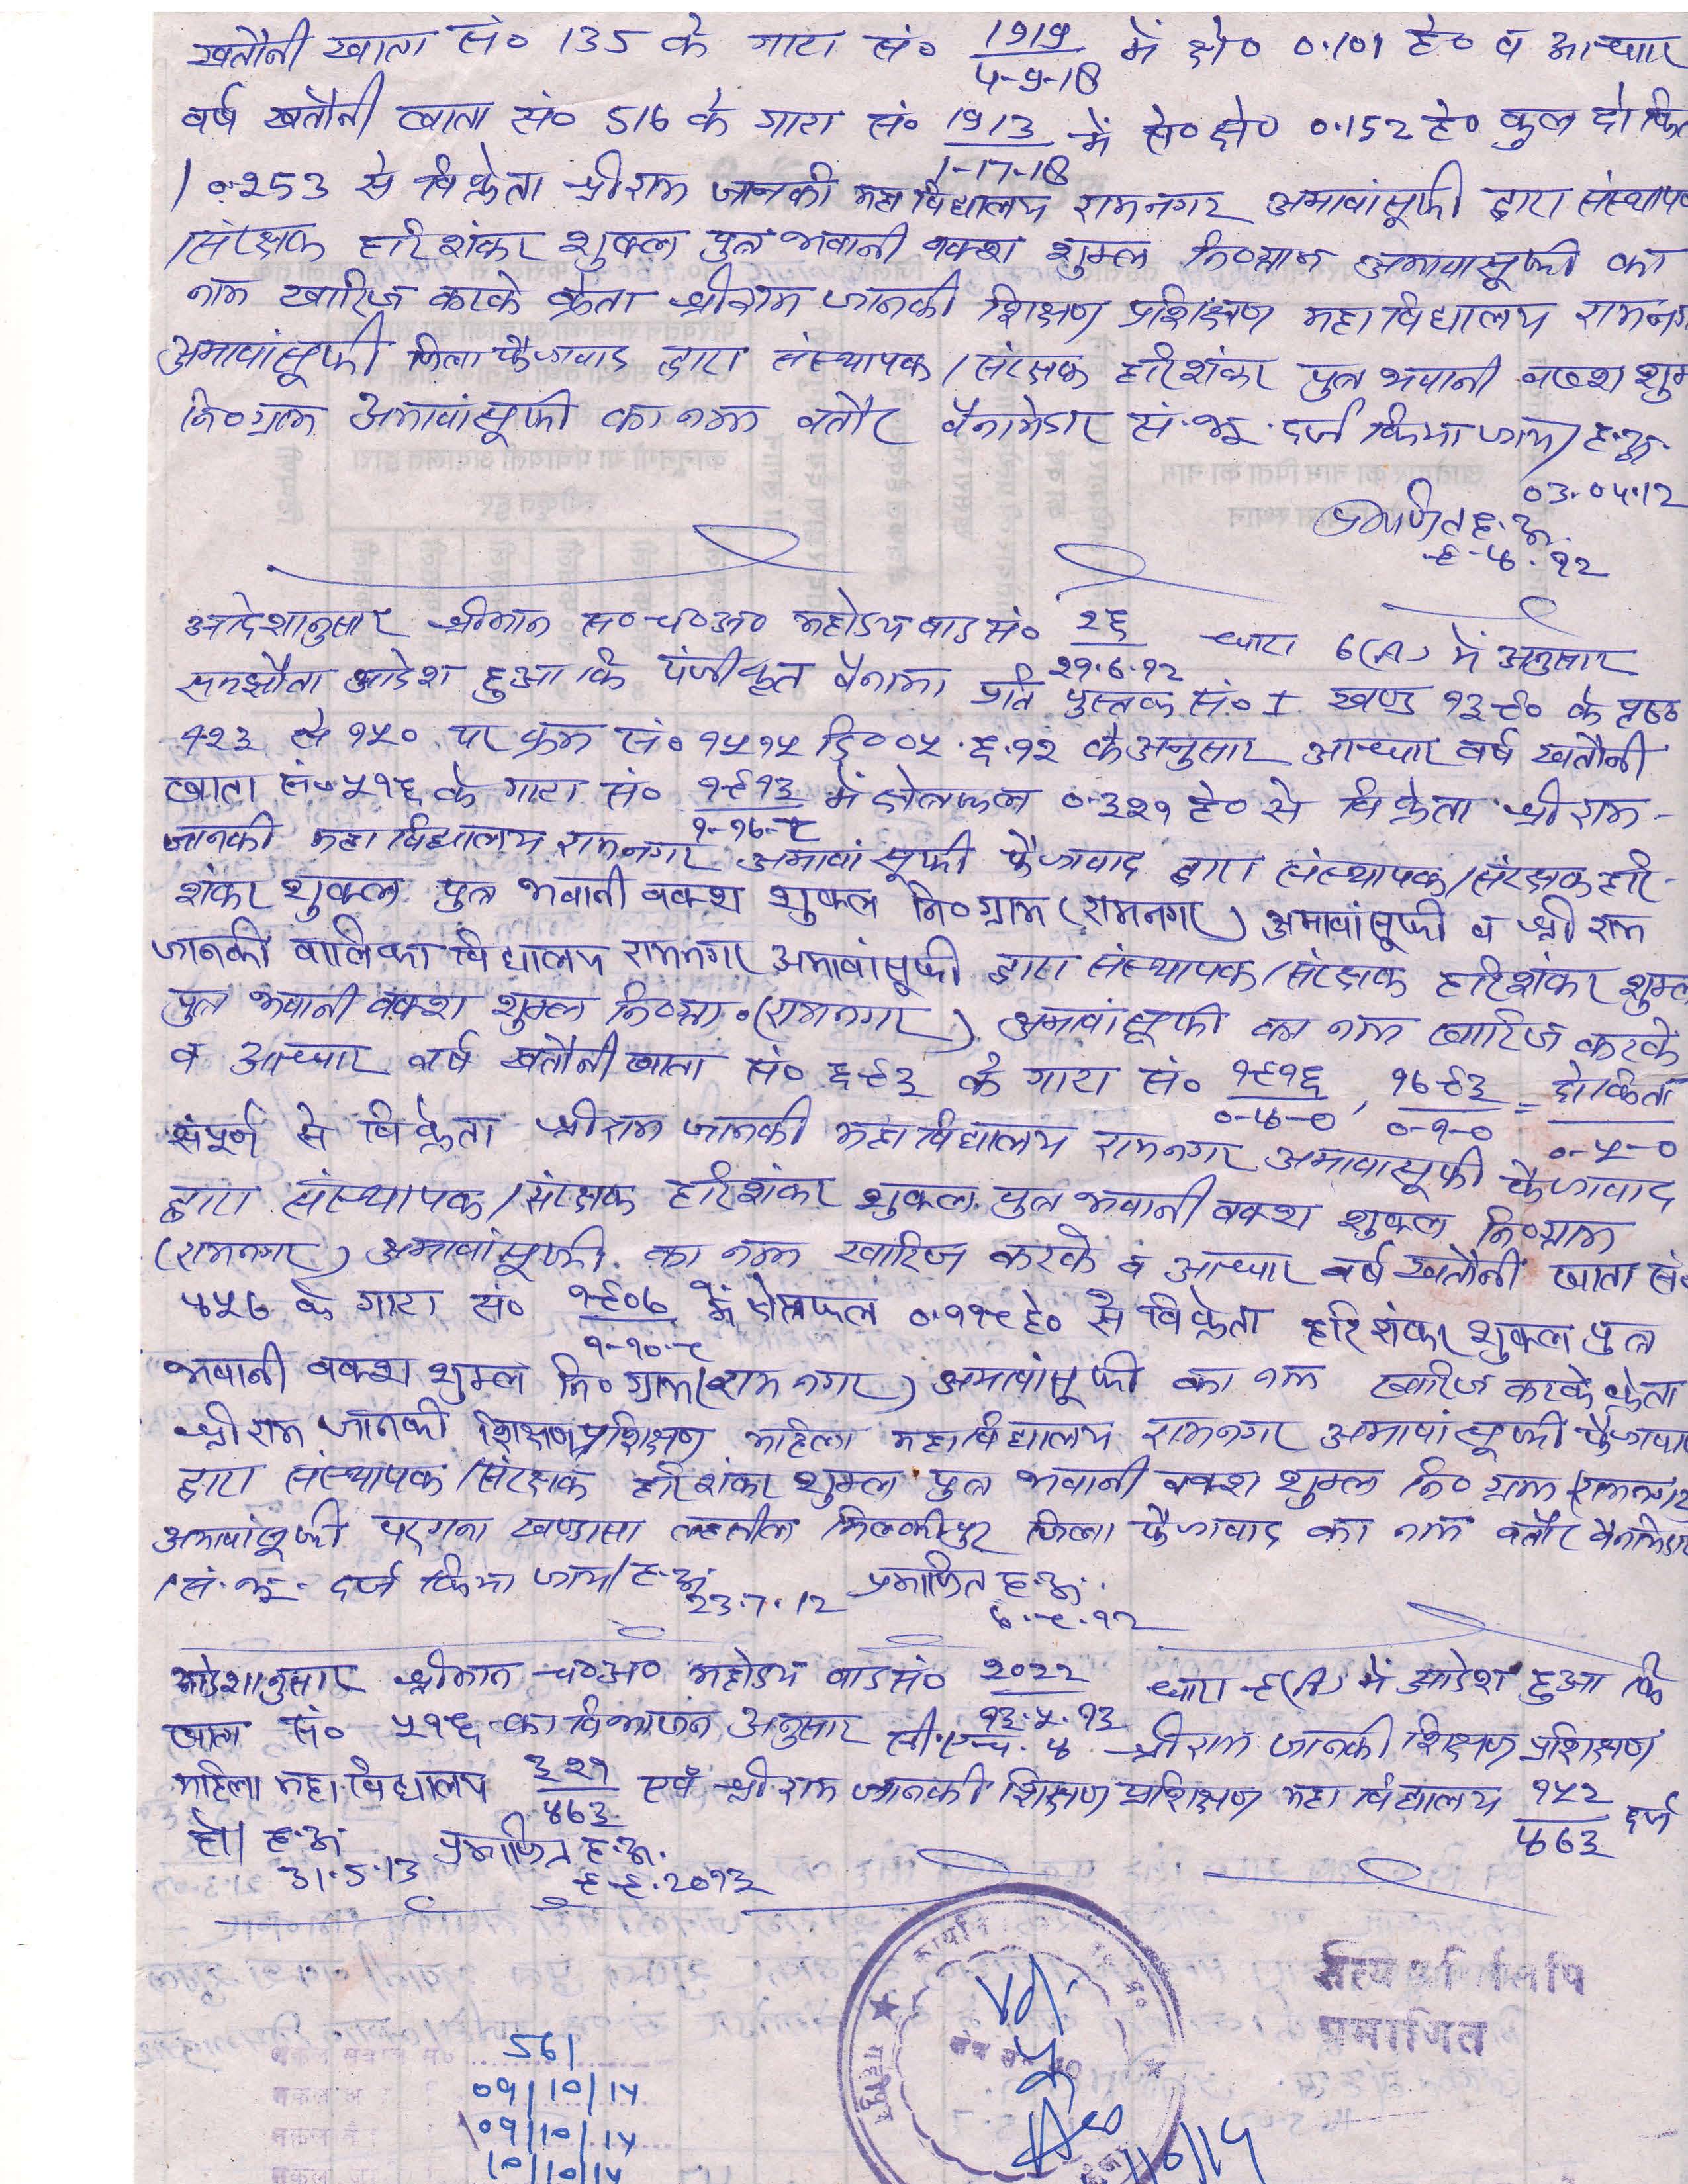 खतौनी खाता सं० 135 के गाटा सं० 1919/4-9-18 में क्षे० 0.101 हे० व आधार
वर्ष खतौनी खाता सं० 516 के गाटा सं० 1913/1-17-18 में से० क्षे० 0.152 हे० कुल दो कित
/ 0.253 से विक्रेता श्रीराम जानकी महाविद्यालय रामनगर अमावांसूफी द्वारा संस्थापक
/संरक्षक हरिशंकर शुक्ल पुत्र भवानी वक्श शुक्ल नि०ग्राम अमावासूफी का
नाम खारिज करके क्रेता श्रीराम जानकी शिक्षण प्रशिक्षण महाविद्यालय रामनग
अमावांसूफी जिला फैजावाद द्वारा संस्थापक/संरक्षक हरिशंकर पुत्र भवानी वख्श शुक्
नि०ग्राम अमावांसूफी का नाम वतौर वैनामेदार सं.भू. दर्ज किया जाय/ह.अ.
03.04.12
प्रमाणित ह.अ.
९-४.१२
आदेशानुसार श्रीमान स०च०अ० महोदय वाद सं० २६/२१.6.१२ धारा 6(A) में अनुसार
समझौता आदेश हुआ कि पंजीकृत वैनामा प्रति पुस्तक सं० I खण्ड १३९० के पृष्ठ
१२३ से १५० पर क्रम सं० १५१५ दि००५.६.१२ के अनुसार आधार वर्ष खतौनी
खाता सं० ५१६ के गाटा सं० १९१३/१-१७-८ में क्षेत्रफल ०.३२१ हे० से विक्रेता श्रीराम-
जानकी महाविद्यालय रामनगर अमावांसूफी फैजावाद द्वारा संस्थापक/संरक्षक हरि-
शंकर शुक्ल पुत्र भवानी वक्श शुक्ल नि०ग्राम (रामनगर) अमावांसूफी व श्री राम
जानकी वालिका विद्यालय रामनगर अमावांसूफी द्वारा संस्थापक/संरक्षक हरिशंकर शुक्ल
पुत्र भवानी वक्श शुक्ल नि०ग्रा.(रामनगर) अमावांसूफी का नाम खारिज करके
व आधार वर्ष खतौनी खाता सं० ६९३ के गाटा सं० १९१६/०-४-०, १७९३/०-१-० = दो किता/०-५-०
संपूर्ण से विक्रेता श्रीराम जानकी महाविद्यालय रामनगर अमावासूफी फैजावाद
द्वारा संस्थापक/संरक्षक हरिशंकर शुक्ल पुत्र भवानी वक्श शुक्ल नि०ग्राम
(रामनगर) अमावांसूफी का नाम खारिज करके व आधार वर्ष खतौनी खाता सं०
४५७ के गाटा सं० १९०७/१-१०-८ में क्षेत्रफल ०.११८ हे० से विक्रेता हरिशंकर शुक्ल पुत्र
भवानी वक्श शुक्ल नि० ग्राम (रामनगर) अमावांसूफी का नाम खारिज करके क्रेता
श्रीराम जानकी शिक्षण प्रशिक्षण महिला महाविद्यालय रामनगर अमावांसूफी फैजावा
द्वारा संस्थापक/संरक्षक हरिशंकर शुक्ल पुत्र भवानी वक्श शुक्ल नि० ग्राम (रामनगर
अमावांसूफी परगना खण्डासा तहसील मिल्कीपुर जिला फैजावाद का नाम वतौर वैनामेदार
/सं.भू. दर्ज किया जाय/ह.अ. 23.7.12 प्रमाणित ह.अ. ७.८.१२
आदेशानुसार श्रीमान च०अ० महोदय वाद सं० २०२२/१३.५.१३ धारा ९(A) में आदेश हुआ कि
खाता सं० ५१६ का विभाजन अनुसार सी.एच. ४ श्रीराम जानकी शिक्षण प्रशिक्षण
महिला महाविद्यालय ३२१/४७३ एवं श्रीराम जानकी शिक्षण प्रशिक्षण महाविद्यालय १५२/४७३ दर्ज
हो। ह.अ. 31.5.13 प्रमाणित ह.अ. ६.६.२०१३
सत्य प्रतिलिपि
प्रमाणित
561
09/10/14
09/10/14
10/10/14